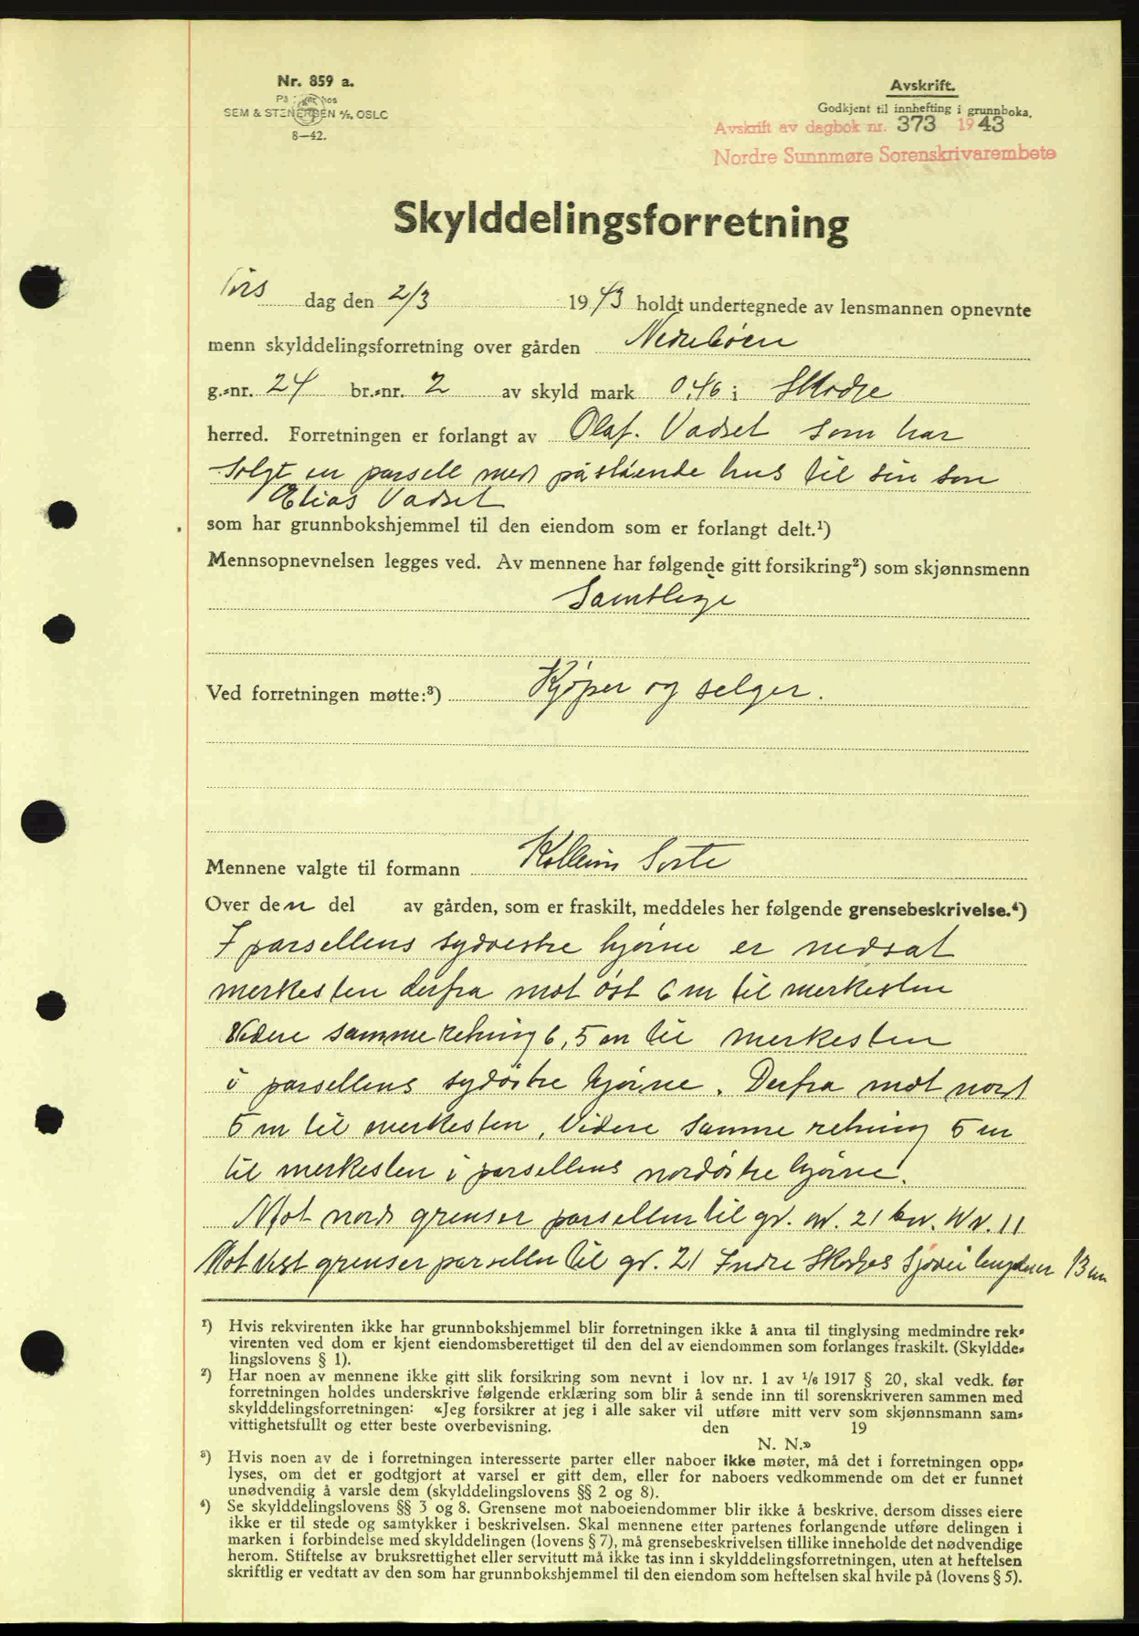 Nr. 859 a.
På lager hos
SEM & STENERSEN A/S, OSLO
8—42.
Avskrift.
Godkjent til innhefting i grunnboka.
Avskrift av dagbok nr. 373 1943
Nordre Sunnmøre Sorenskrivarembete
Skylddelingsforretning
Tirs dag den 2/3 1943 holdt undertegnede av lensmannen opnevnte
menn skylddelingsforretning over gården
g.-nr. 24 br.-nr. 2 av skyld mark 0,46 i Skodje
herred. Forretningen er forlangt av Olaf. Vadset som har
solgt en parsell med påstående hus til sin søn
Elias Vadset
som har grunnbokshjemmel til den eiendom som er forlangt delt.¹)
Mennsopnevnelsen legges ved. Av mennene har følgende gitt forsikring²) som skjønnsmenn
Samtlige
Ved forretningen møtte:³) Kjøper og selger.
Mennene valgte til formann
Over den del av gården, som er fraskilt, meddeles her følgende grensebeskrivelse.⁴)
I parsellens sydvestre hjørne er nedsat
merkesten derfra mot øst 6 m til merkesten
Videre samme retning 6,5 m til merkesten
i parsellens sydøstre hjørne. Derfra mot nord
5 m til merkesten, Videre samme retning 5 m
til merkesten i parsellens nordøstre hjørne.
Mot nord grenser parsellen til gr. nr. 21 br. Nr. 11
Mot Vest grenser parsellen til gr. 21 Indre Skodje 13 m
¹) Hvis rekvirenten ikke har grunnbokshjemmel blir forretningen ikke å anta til tinglysing medmindre rek-
virenten ved dom er kjent eiendomsberettiget til den del av eiendommen som forlanges fraskilt. (Skyldde-
lingslovens § 1).
²) Har noen av mennene ikke gitt slik forsikring som nevnt i lov nr. 1 av 1/6 1917 § 20, skal vedk. før
forretningen holdes underskrive følgende erklæring som blir å sende inn til sorenskriveren sammen med
skylddelingsforretningen: «Jeg forsikrer at jeg i alle saker vil utføre mitt verv som skjønnsmann sam-
vittighetsfullt og etter beste overbevisning. den 19
N. N.»
³) Hvis noen av de i forretningen interesserte parter eller naboer ikke møter, må det i forretningen opp-
lyses, om det er godtgjort at varsel er gitt dem, eller for naboers vedkommende om det er funnet
unødvendig å varsle dem (skylddelingslovens §§ 2 og 8).
⁴) Se skylddelingslovens §§ 3 og 8. Grensene mot naboeiendommer blir ikke å beskrive, dersom disses eiere
ikke er til stede og samtykker i beskrivelsen. Skal mennene etter partenes forlangende utføre delingen i
marken i forbindelse med skylddelingen (lovens § 7), må grensebeskrivelsen tillike inneholde det nødvendige
herom. Stiftelse av bruksrettighet eller servitutt må ikke tas inn i skylddelingsforretningen, uten at heftelsen
skriftlig er vedtatt av den som har grunnbokshjemmel til den eiendom som heftelsen skal hvile på (lovens § 5).